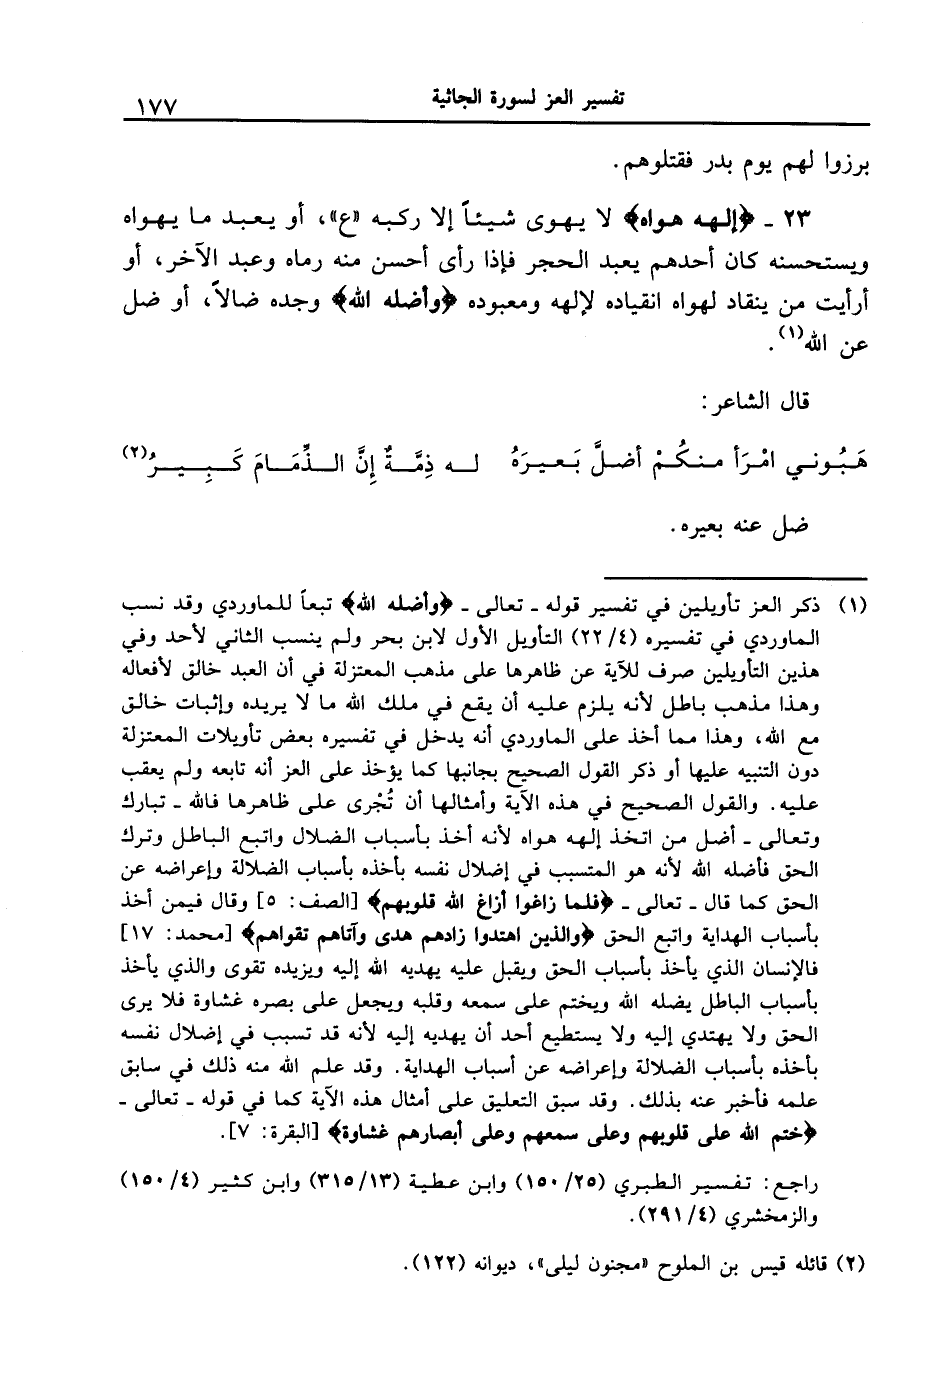 تفسير العز لسورة الجاثية ١٧٧
برزوا لهم يوم بدر فقتلوهم.
٢٣ ـ ﴿إلهه هواه﴾ لا يهوى شيئاً إلا ركبه «ع»، أو يعبد ما يهواه
ويستحسنه كان أحدهم يعبد الحجر فإذا رأى أحسن منه رماه وعبد الآخر، أو
أرأيت من ينقاد لهواه انقياده لإلهه ومعبوده ﴿وأضله الله﴾ وجده ضالاً، أو ضل
عن الله(١).
قال الشاعر:
هَبُوني امْرَأ منكُمْ أضلَّ بَعيرَهُ له ذِمَّةٌ إنَّ الذِّمَامَ كَبِيرُ(٢)
ضل عنه بعيره.
(١) ذكر العز تأويلين في تفسير قوله ـ تعالى ـ ﴿وأضله الله﴾ تبعاً للماوردي وقد نسب
الماوردي في تفسيره (٤/٢٢) التأويل الأول لابن بحر ولم ينسب الثاني لأحد وفي
هذين التأويلين صرف للآية عن ظاهرها على مذهب المعتزلة في أن العبد خالق لأفعاله
وهذا مذهب باطل لأنه يلزم عليه أن يقع في ملك الله ما لا يريده وإثبات خالق
مع الله، وهذا مما أخذ على الماوردي أنه يدخل في تفسيره بعض تأويلات المعتزلة
دون التنبيه عليها أو ذكر القول الصحيح بجانبها كما يؤخذ على العز أنه تابعه ولم يعقب
عليه. والقول الصحيح في هذه الآية وأمثالها أن تُجْرى على ظاهرها فالله ـ تبارك
وتعالى ـ أضل من اتخذ إلهه هواه لأنه أخذ بأسباب الضلال واتبع الباطل وترك
الحق فأضله الله لأنه هو المتسبب في إضلال نفسه بأخذه بأسباب الضلالة وإعراضه عن
الحق كما قال ـ تعالى ـ ﴿فلما زاغوا أزاغ الله قلوبهم﴾ [الصف: ٥] وقال فيمن أخذ
بأسباب الهداية واتبع الحق ﴿والذين اهتدوا زادهم هدى وآتاهم تقواهم﴾ [محمد: ١٧]
فالإنسان الذي يأخذ بأسباب الحق ويقبل عليه يهديه الله إليه ويزيده تقوى والذي يأخذ
بأسباب الباطل يضله الله ويختم على سمعه وقلبه ويجعل على بصره غشاوة فلا يرى
الحق ولا يهتدي إليه ولا يستطيع أحد أن يهديه إليه لأنه قد تسبب في إضلال نفسه
بأخذه بأسباب الضلالة وإعراضه عن أسباب الهداية. وقد علم الله منه ذلك في سابق
علمه فأخبر عنه بذلك. وقد سبق التعليق على أمثال هذه الآية كما في قوله ـ تعالى ـ
﴿ختم الله على قلوبهم وعلى سمعهم وعلى أبصارهم غشاوة﴾ [البقرة: ٧].
راجع: تفسير الطبري (٢٥/١٥٠) وابن عطية (١٣/٣١٥) وابن كثير (٤/١٥٠)
والزمخشري (٤/٢٩١).
(٢) قائله قيس بن الملوح «مجنون ليلى»، ديوانه (١٢٢).